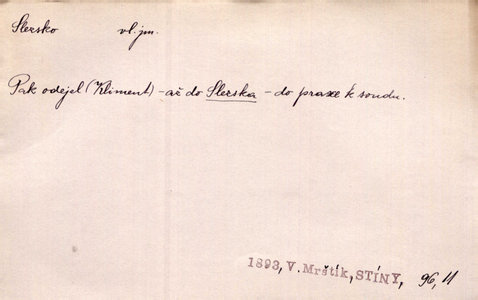 Slezsko vl. jm.
Pak odejel (Kliment) – až do Slezska – do praxe k soudu.
1893, V. Mrštík, STÍNY, 96, 11